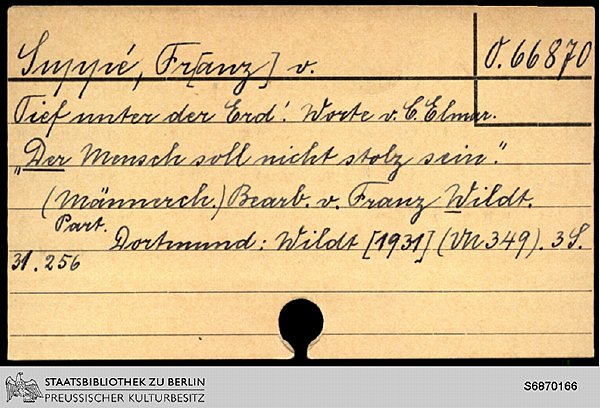 Suppé, Fr[anz] v.
O. 66870
Tief unter der Erd'. Worte v. C. Elmar.
"Der Mensch soll nicht stolz sein."
(Männerch.) Bearb. v. Franz Wildt.
Part.
Dortmund: Wildt [1931] (VN 349). 3 S.
31. 256
STAATSBIBLIOTHEK ZU BERLIN
PREUSSISCHER KULTURBESITZ
S6870166